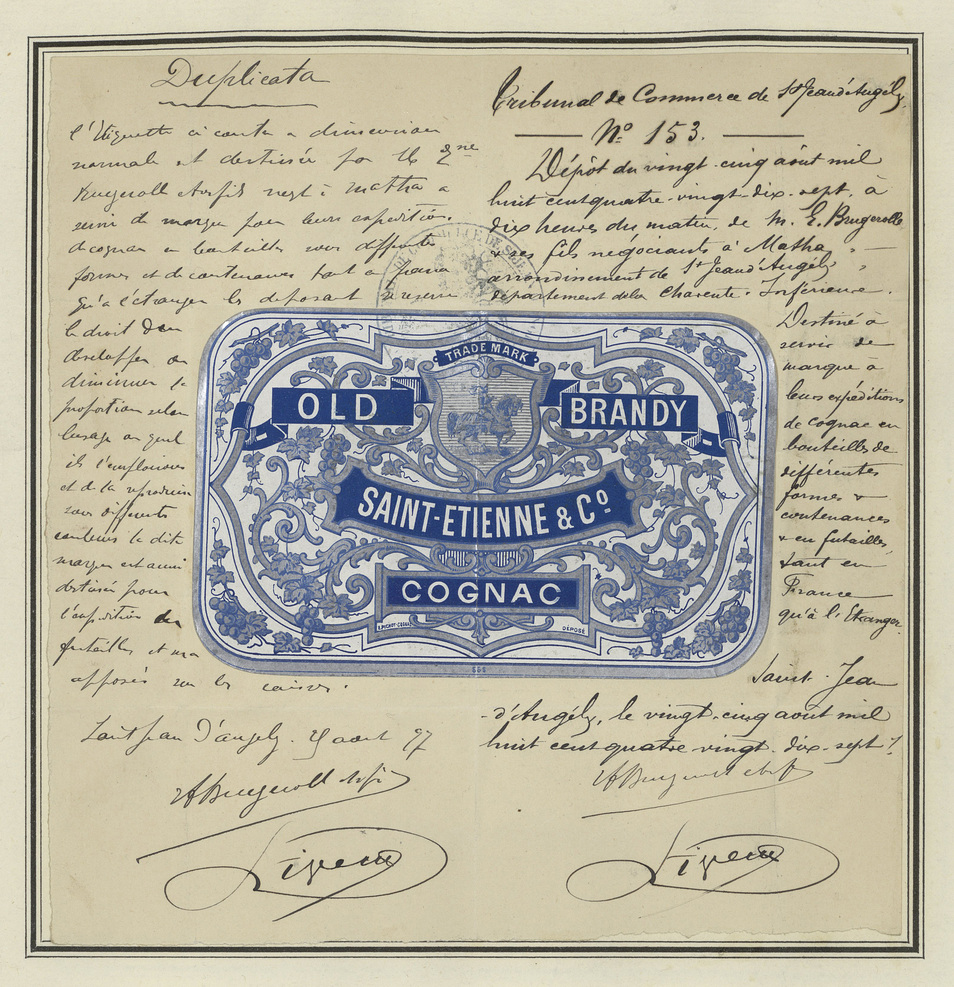 Duplicata
l'Etiquette ci contre a dimension
normale est destinée par
Brugerolle & ses fils negts à Matha a
servir de marque pour leurs expéditions
de cognac en bouteilles sous differentes
formes et de contenances tant en france
qu'à l'étranger les deposant se reserve
le droit d'en
développer ou
diminuer la
proportion selon
l'usage au quel
ils l'emploieront
et de la reproduire
sous differentes
couleurs la dite
marque est aussi
destinée pour
l'expédition des
futailles et sera
apposée sur les caisses.
Saint Jean d'angely. 25 aout 97
Brugerolle & ses fils
Tribunal de Commerce de St Jean d'Angély
No. 153.
Dépôt du vingt-cinq août mil
huit cent quatre-vingt-dix-sept, à
dix heures du matin, de M. E. Brugerolle
& ses fils négociants à Matha,
arrondissement de St Jean d'Angély,
département de la Charente-Inférieure.
Destiné à
servir de
marque à
leurs expéditions
de cognac en
bouteilles de
différentes
formes &
contenances
& en futailles,
tant en
France
qu'à l'Etranger.
Saint-Jean
-d'Angély, le vingt-cinq août mil
huit cent quatre-vingt-dix-sept.
TRADE MARK
OLD BRANDY
SAINT-ETIENNE & Co
COGNAC
DÉPOSÉ